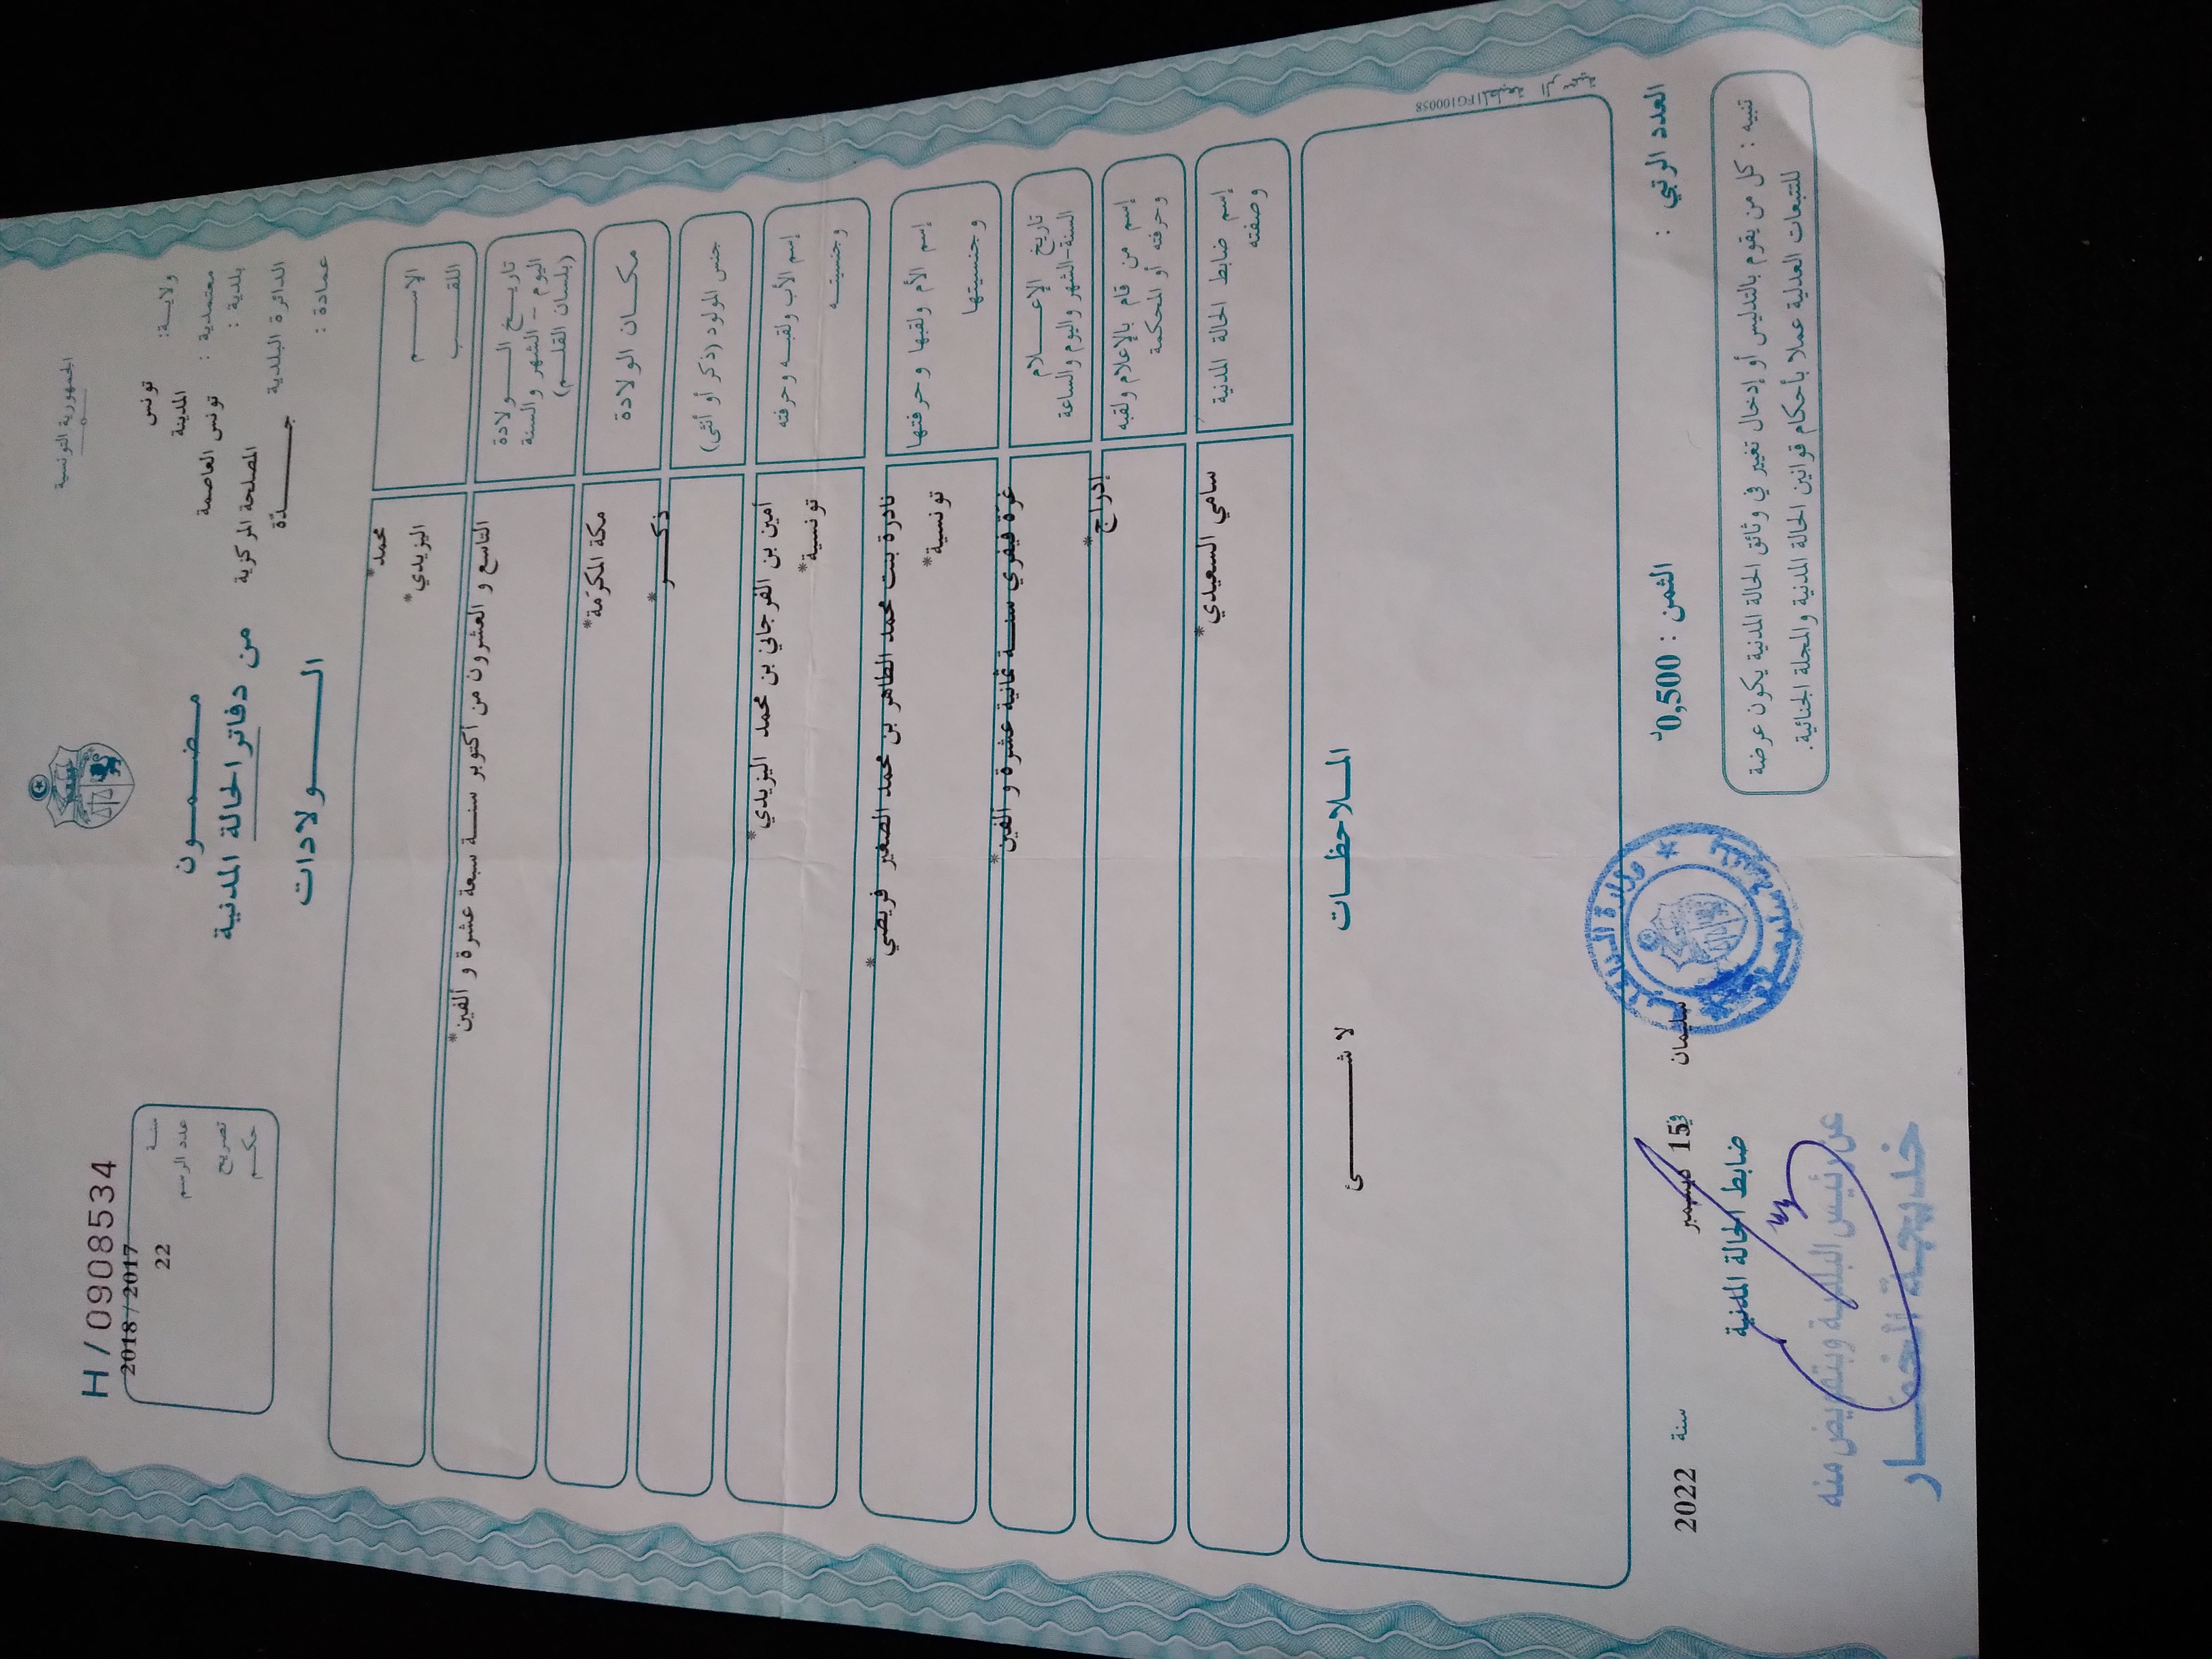 الجمهورية التونسية
H / 0908534
2018 / 2017
سنة
22 عدد الرسم
تصريح
حكم
ولاية: تونس
معتمدية : المدينة
بلدية : تونس العاصمة
الدائرة البلدية المصلحة المركزية
عمادة : جـــــدّة
مضمون
من دفاتر الحالة المدنية
الولادات
الاسم محمد*
اللقب اليزيدي*
تاريخ الولادة
اليوم – الشهر والسنة
(بلسان القلم)
التاسع و العشرون من أكتوبر سنة سبعة عشرة و ألفين*
مكان الولادة مكة المكرّمة*
جنس المولود (ذكر أو أنثى) ذكر*
إسم الأب ولقبه وحرفته أمين بن الفرجاني بن محمد اليزيدي*
وجنسيته تونسية*
إسم الأم ولقبها وحرفتها نادرة بنت محمد الطاهر بن محمد الصغير فريضي*
وجنسيتها تونسية*
تاريخ الإعلام
السنة-الشهر واليوم والساعة
غرّة فيفري سنة ثمانية عشرة و ألفين*
إسم من قام بالإعلام ولقبه
وحرفته أو المحكمة
إدراج*
إسم ضابط الحالة المدنية
وصفته
سامي السعيدي*
الملاحظات
لا شئ
FG100058
العدد الرتبي :
الثمن : 0,500د
سليمان في 15 ديسمبر سنة 2022
ضابط الحالة المدنية
تنبيه : كل من يقوم بالتدليس أو إدخال تغيير في وثائق الحالة المدنية يكون عرضة
للتتبعات العدلية عملا بأحكام قوانين الحالة المدنية والمجلة الجنائية.
عن رئيس البلدية وبتفويض منه
خديجة الخمار